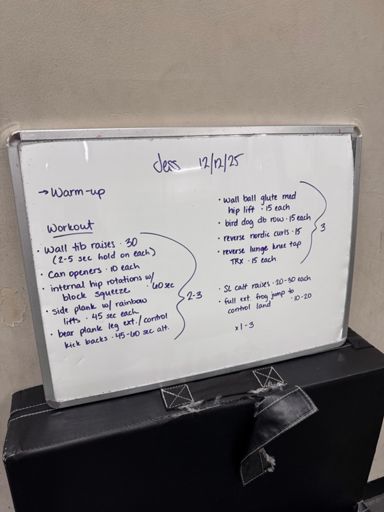 Jess 12/12/25
→ Warm-up
Workout
• Wall tib raises · 30
(2-5 sec hold on each)
• Can openers · 10 each
• internal hip rotations w/
block squeeze · 60 sec
• side plank w/ rainbow
lifts · 45 sec each
• bear plank leg ext./control
kick backs · 45-60 sec alt.
2-3
• wall ball glute med
hip lift · 15 each
• bird dog db row · 15 each
• reverse nordic curls · 15
• reverse lunge knee tap
TRX · 15 each
3
• SL calf raises · 20-30 each
• full ext. frog jump to
control land · 10-20
x1-3